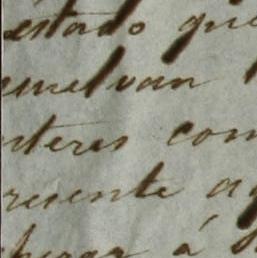 estado que
uelvan
nteres com
resente a
hegar á S